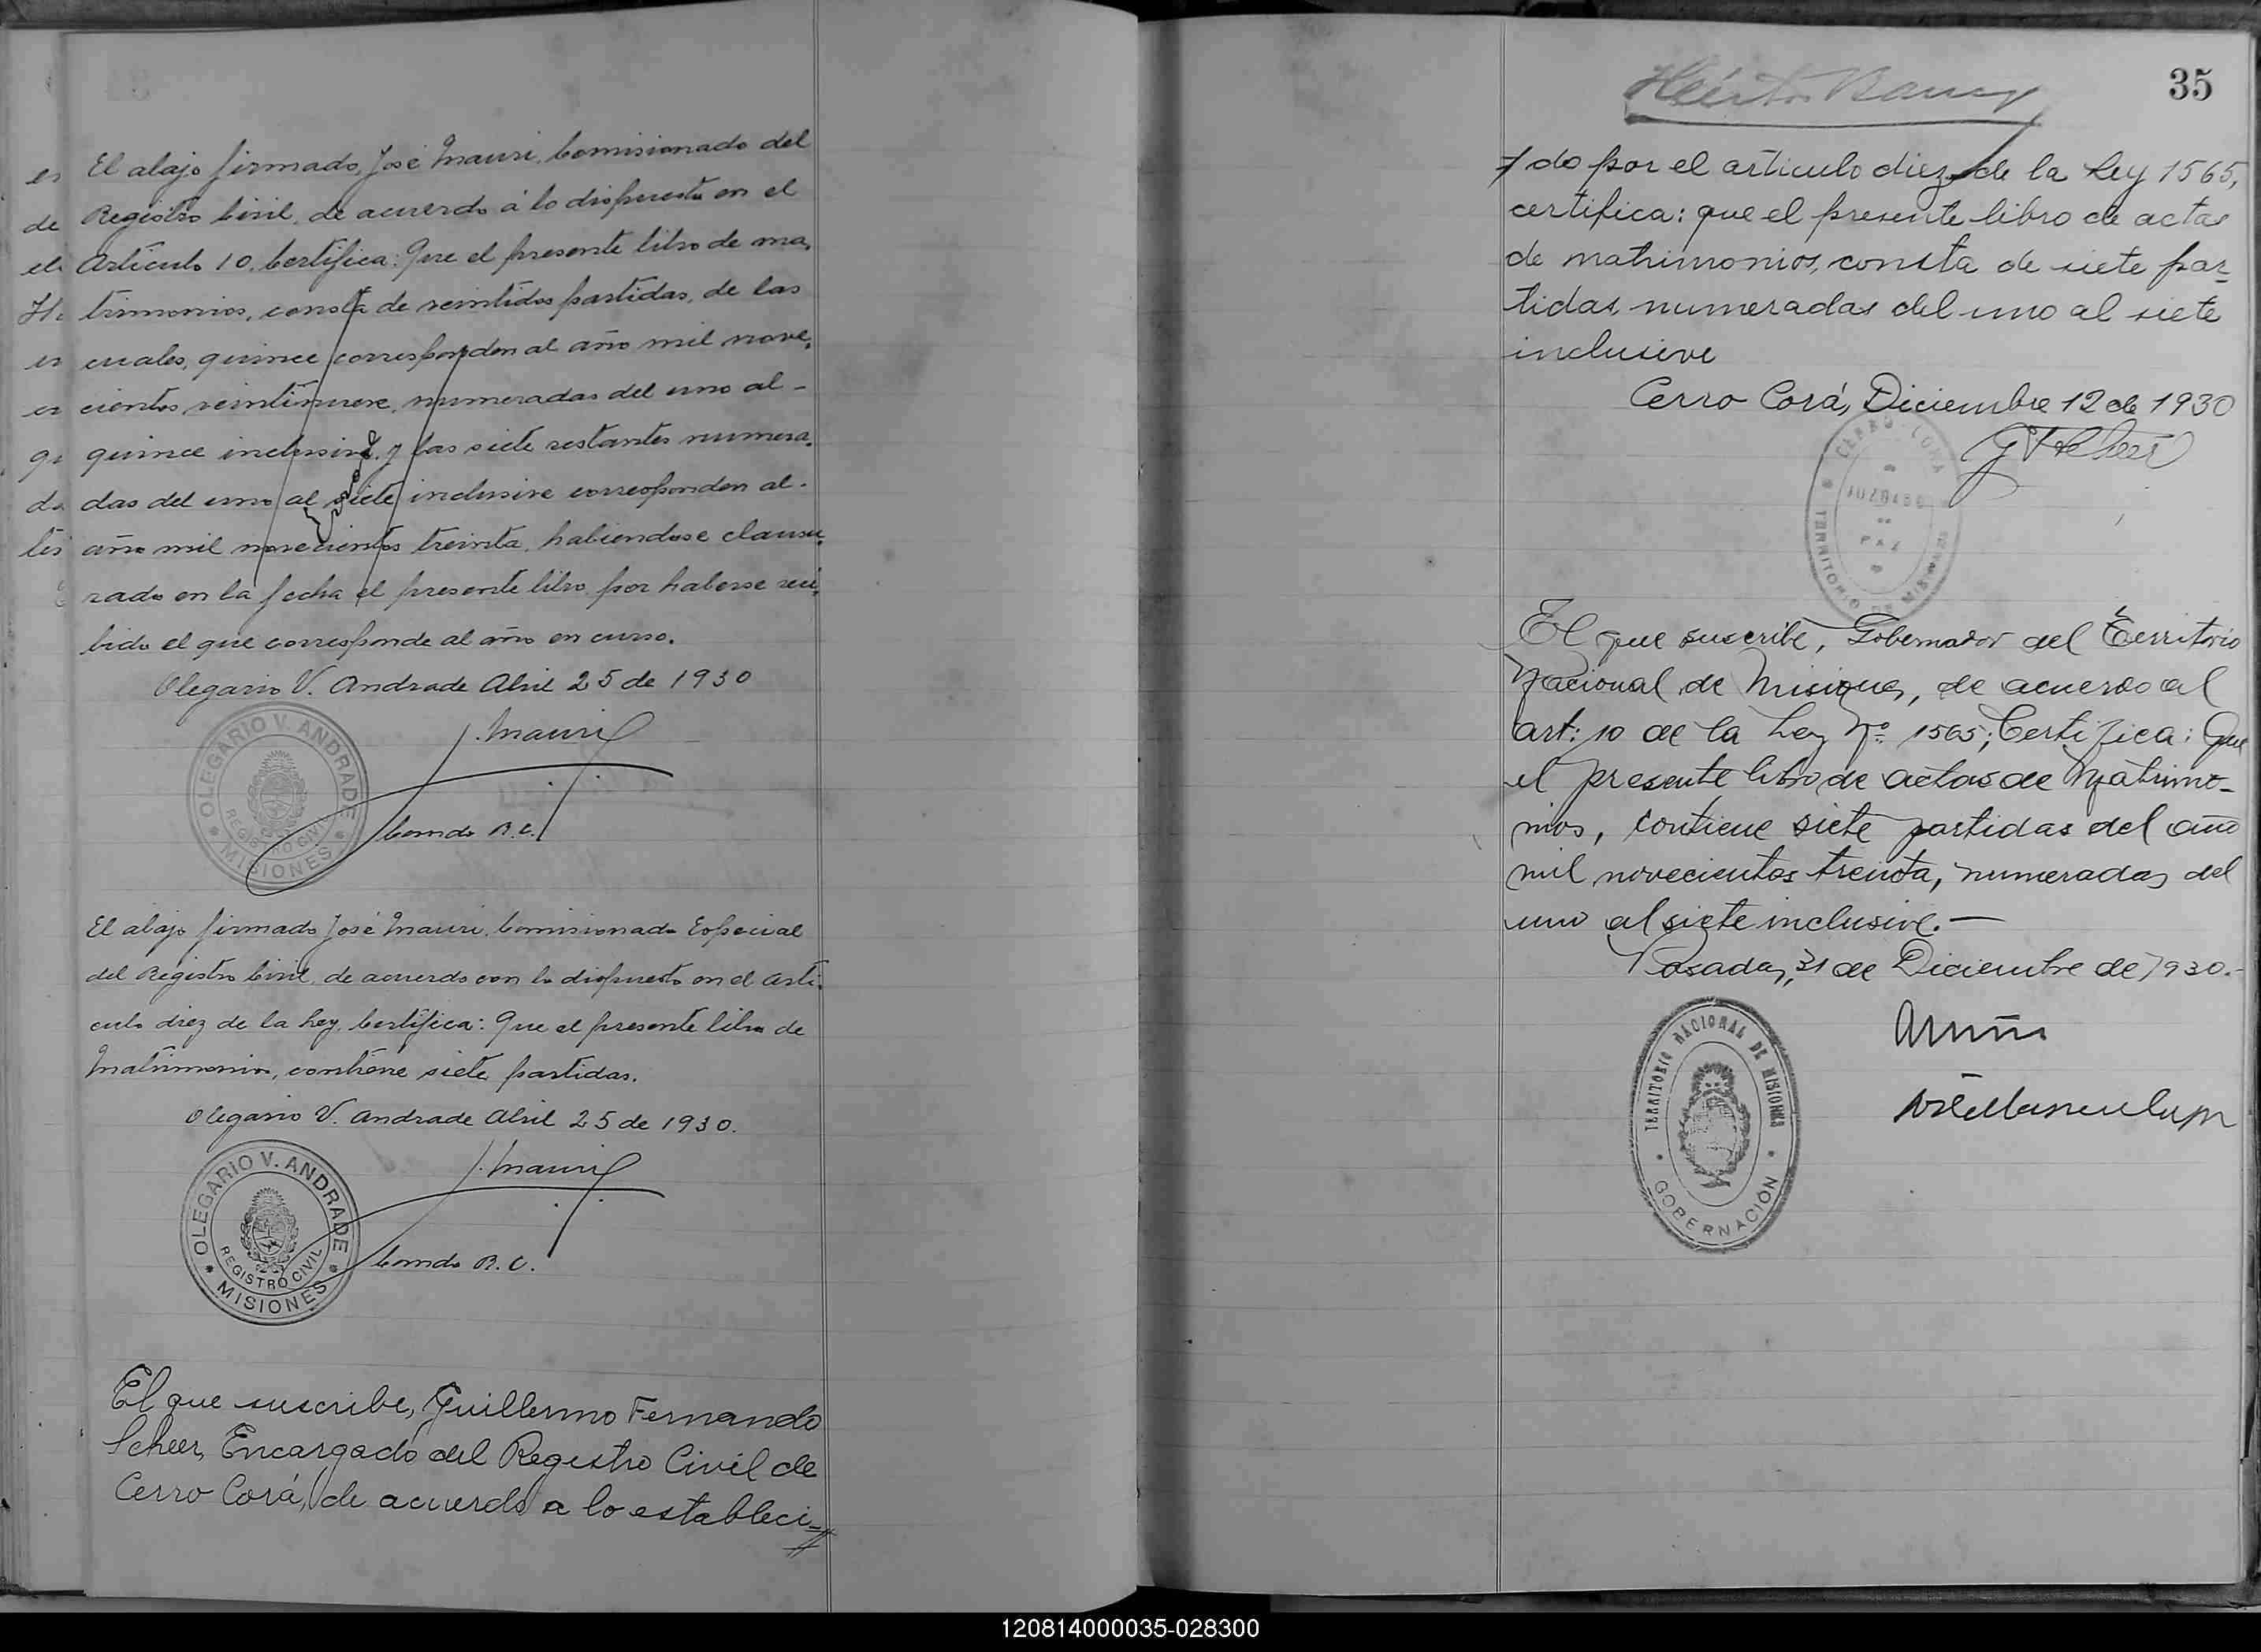 El abajo firmado, José Mauri, Comisionado del
Registro Civil, de acuerdo á lo dispuesto en el
Artículo 10. Certifica: Que el presente libro de ma,
trimonios, consta de veintidos partidas, de las
cuales, quince corresponden al año mil nove,
cientos veintinueve, numeradas del uno al -
quince inclusive, y las siete restantes numera,
das del uno al siete inclusive corresponden al -
año mil novecientos treinta, habiendose clausu,
rado en la fecha el presente libro por haberse reci,
bido el que corresponde al año en curso.
Olegario V. Andrade Abril 25 de 1930
J. Mauri
Comdo R.C.
OLEGARIO V. ANDRADE
REGISTRO CIVIL
* MISIONES *
El abajo firmado José Mauri, Comisionado Especial
del Registro Civil, de acuerdo con lo dispuesto en el arti,
culo diez de la Ley, Certifica: Que el presente libro de
Matrimonios, contiene siete partidas.
Olegario V. Andrade Abril 25 de 1930.
J. Mauri
Comdo R.C.
OLEGARIO V. ANDRADE
REGISTRO CIVIL
* MISIONES *
El que suscribe, Guillermo Fernando
Scheer, Encargado del Registro Civil de
Cerro Corá, de acuerdo a lo estableci-//
35
do por el articulo diez de la Ley 1565,
certifica: que el presente libro de actas
de matrimonios, consta de siete par-
tidas, numeradas del uno al siete
inclusive
Cerro Corá, Diciembre 12 de 1930
G F Scheer
CERRO CORA
JUZGADO
DE
PAZ
TERRITORIO DE MISIONES
El que suscribe, Gobernador del Territorio
Nacional de Misiones, de acuerdo al
art: 10 de la Ley Nº 1565; Certifica: Que
el presente libro de actas de Matrimo-
nios, contiene siete partidas del año
mil novecientos treinta, numeradas del
uno al siete inclusive.—
Posadas, 31 de Diciembre de 1930.-
TERRITORIO NACIONAL DE MISIONES
* GOBERNACIÓN *
120814000035-028300